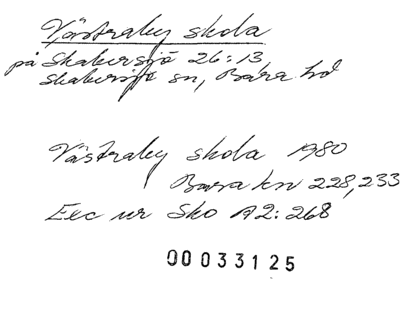 Västraby skola
på Skabersjö 26:13
Skabersjö sn, Bara hd
Västraby skola 1980
Bara kn 228,233
Exc ur Sko A2:268
00033125